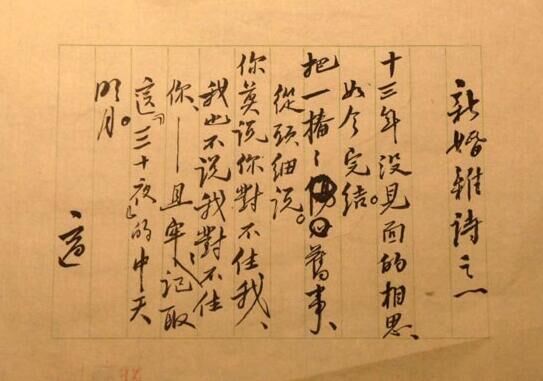 新婚雜詩之一
十三年没見面的相思、
於今完结。
把一樁〻舊事、
從頭细说。
你莫说你對不住我、
我也不说我對不住
你、——且牢〻記取
這『三十夜』的中天
明月。
適